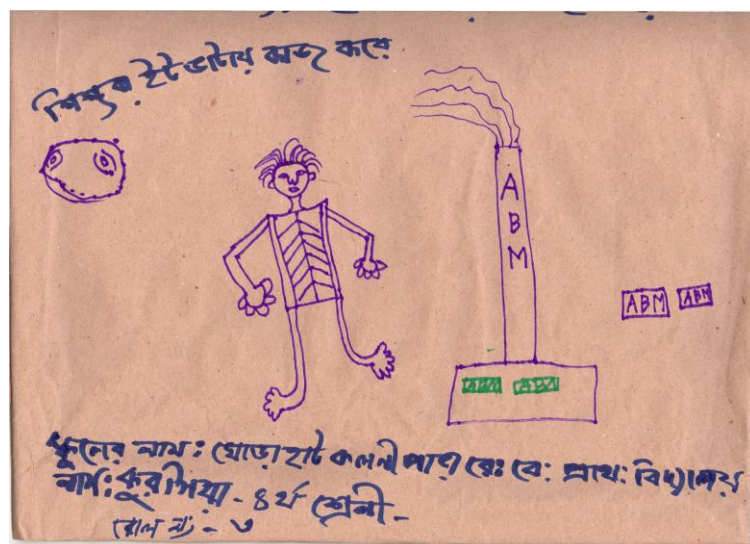 শিশুরা ইট ভাটায় কাজ করে
A
B
M
ABM ABM
ABM ABM
স্কুলের নাম: ঘোড়া হাট কলনী পাড়া রেঃ বে: প্রাথ: বিদ্যালয়
নাম: কুরশিয়া - ৪র্থ শ্রেনী -
রোল নং - ৩